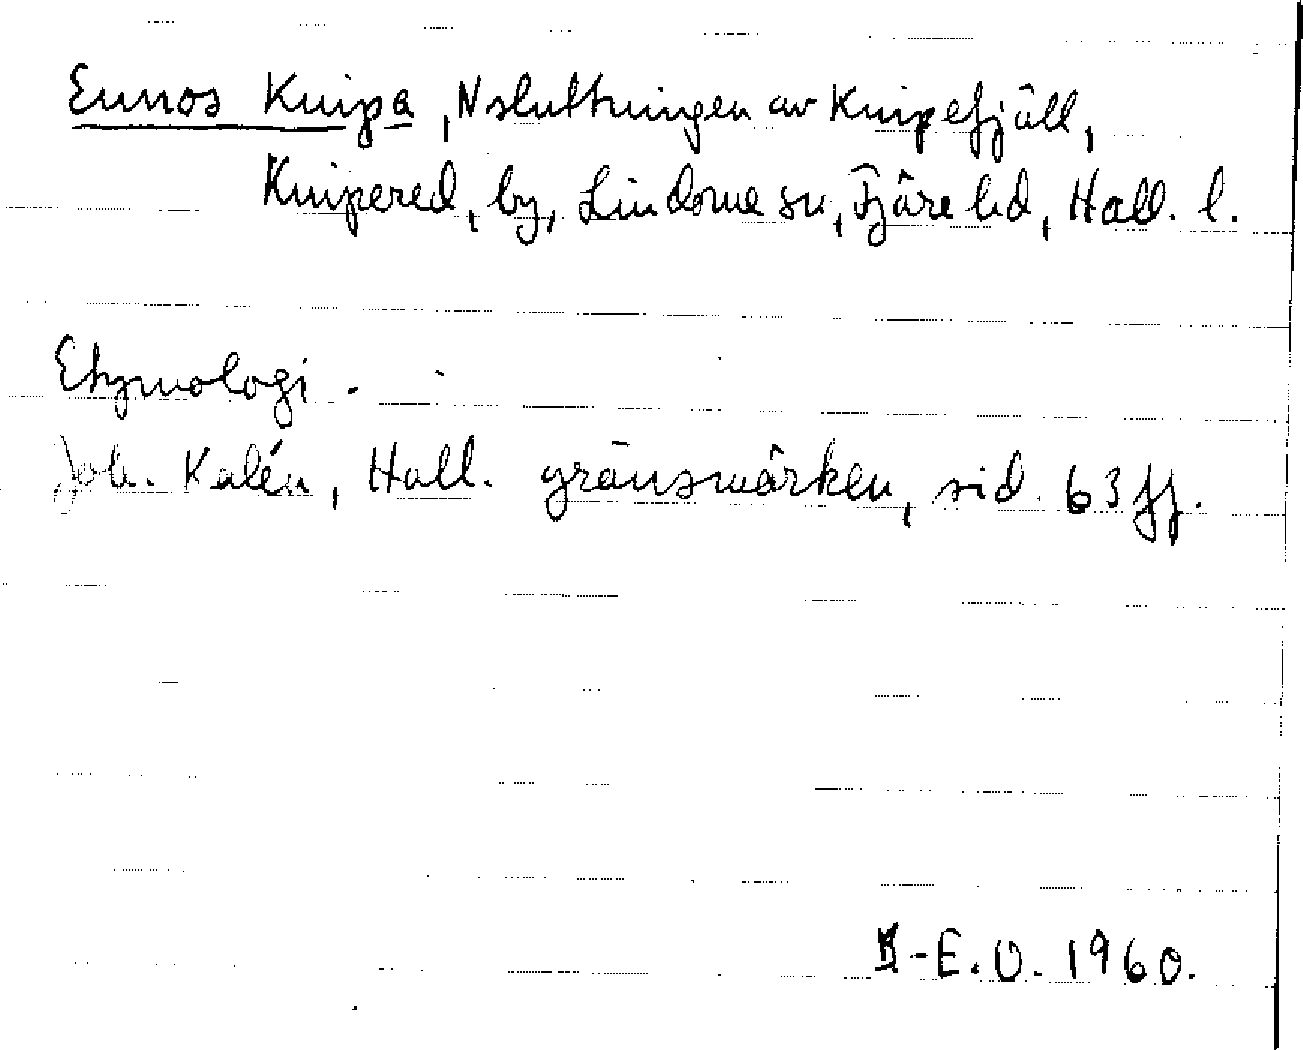 Ennos Knipa, Nsluttningen av Knipefjäll,
Knipered, by, Lindome sn, Fjäre hd, Hall. l.
Etymologi.
Joh. Kalén, Hall. gränsmärken, sid. 63 ff.
K-E.U. 1960.